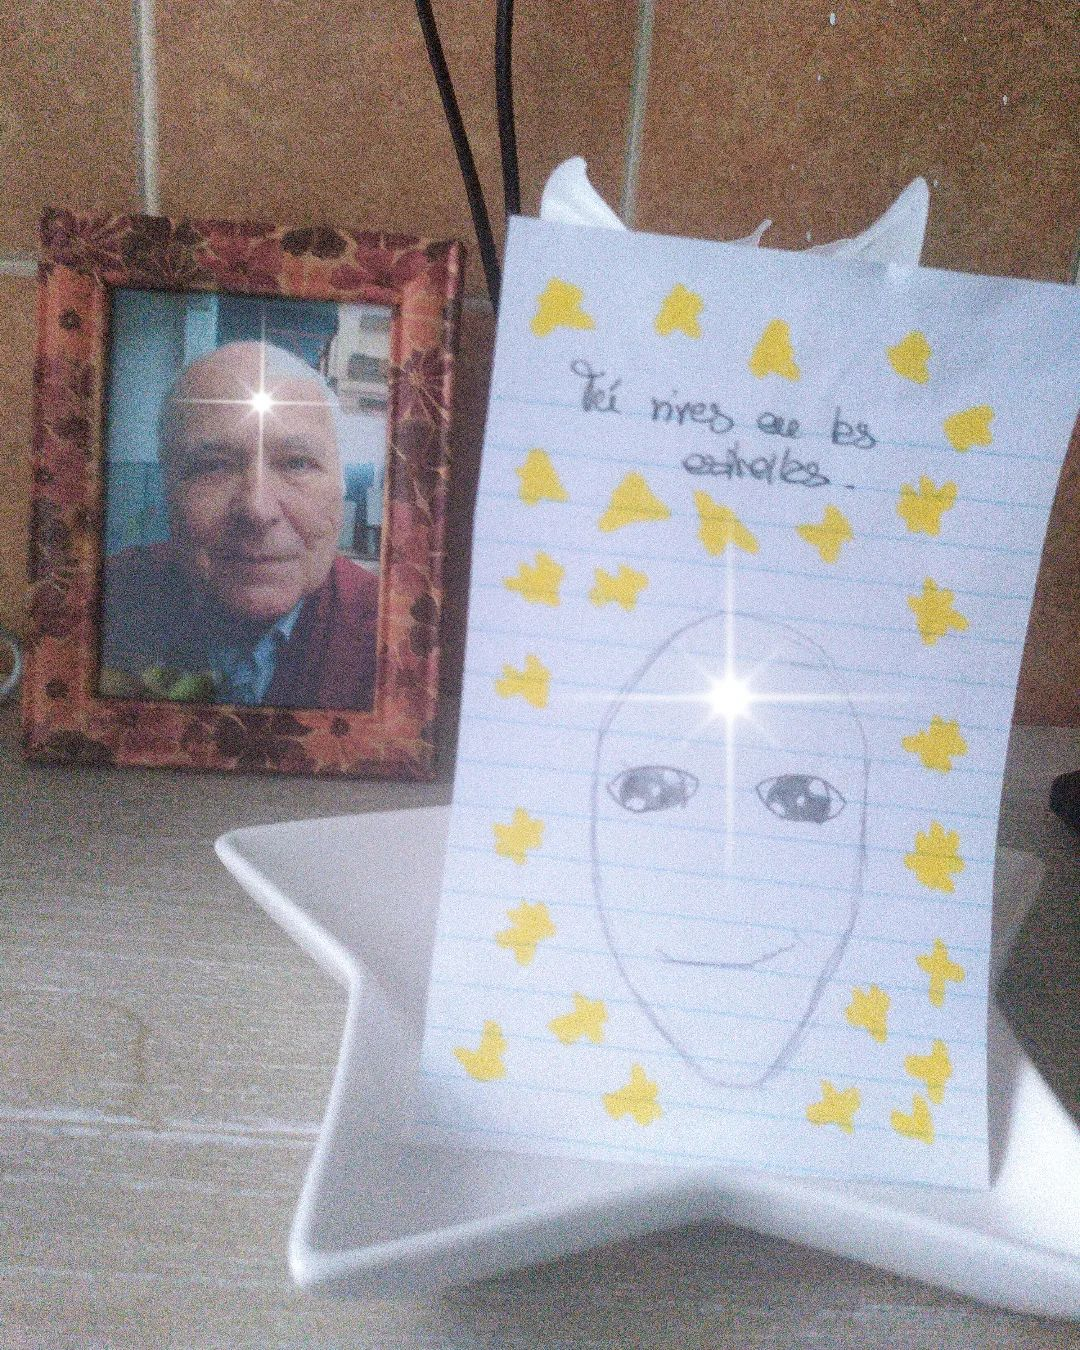 Tú vives en las
estrellas.